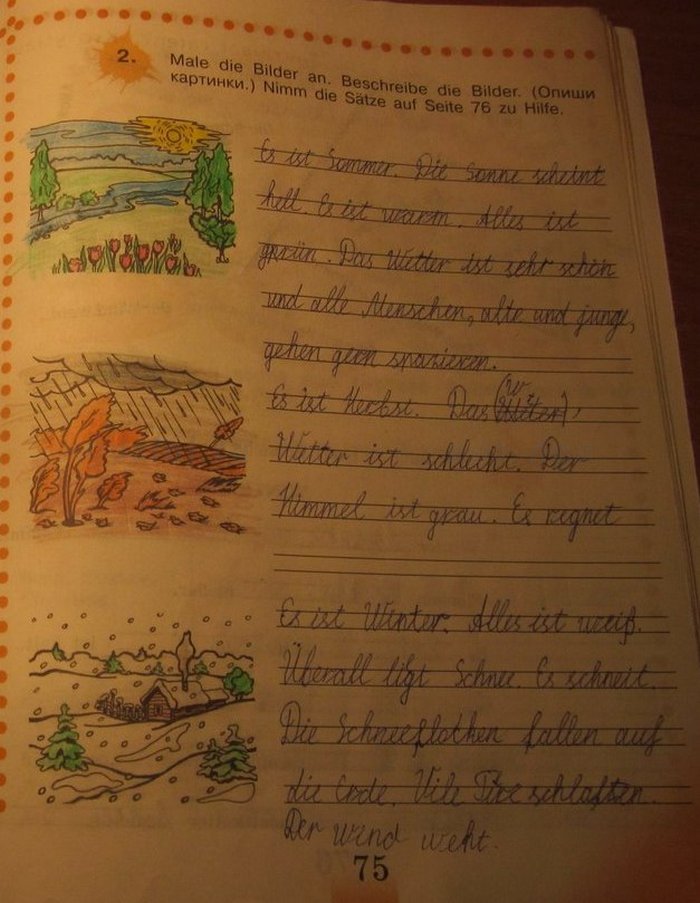 2. Male die Bilder an. Beschreibe die Bilder. (Опиши
картинки.) Nimm die Sätze auf Seite 76 zu Hilfe.
Es ist Sommer. Die Sonne scheint
hell. Es ist warm. Alles ist
grün. Das Wetter ist sehr schön
und alle Menschen, alte und junge,
gehen gern spazieren.
Es ist Herbst. Das
Wetter ist schlecht. Der
Himmel ist grau. Es regnet
Es ist Winter. Alles ist weiß.
Überall ligt Schnee. Es schneit.
Die Schneeflocken fallen auf
die Erde. Vile Tire schlafen.
Der Wind weht.
75